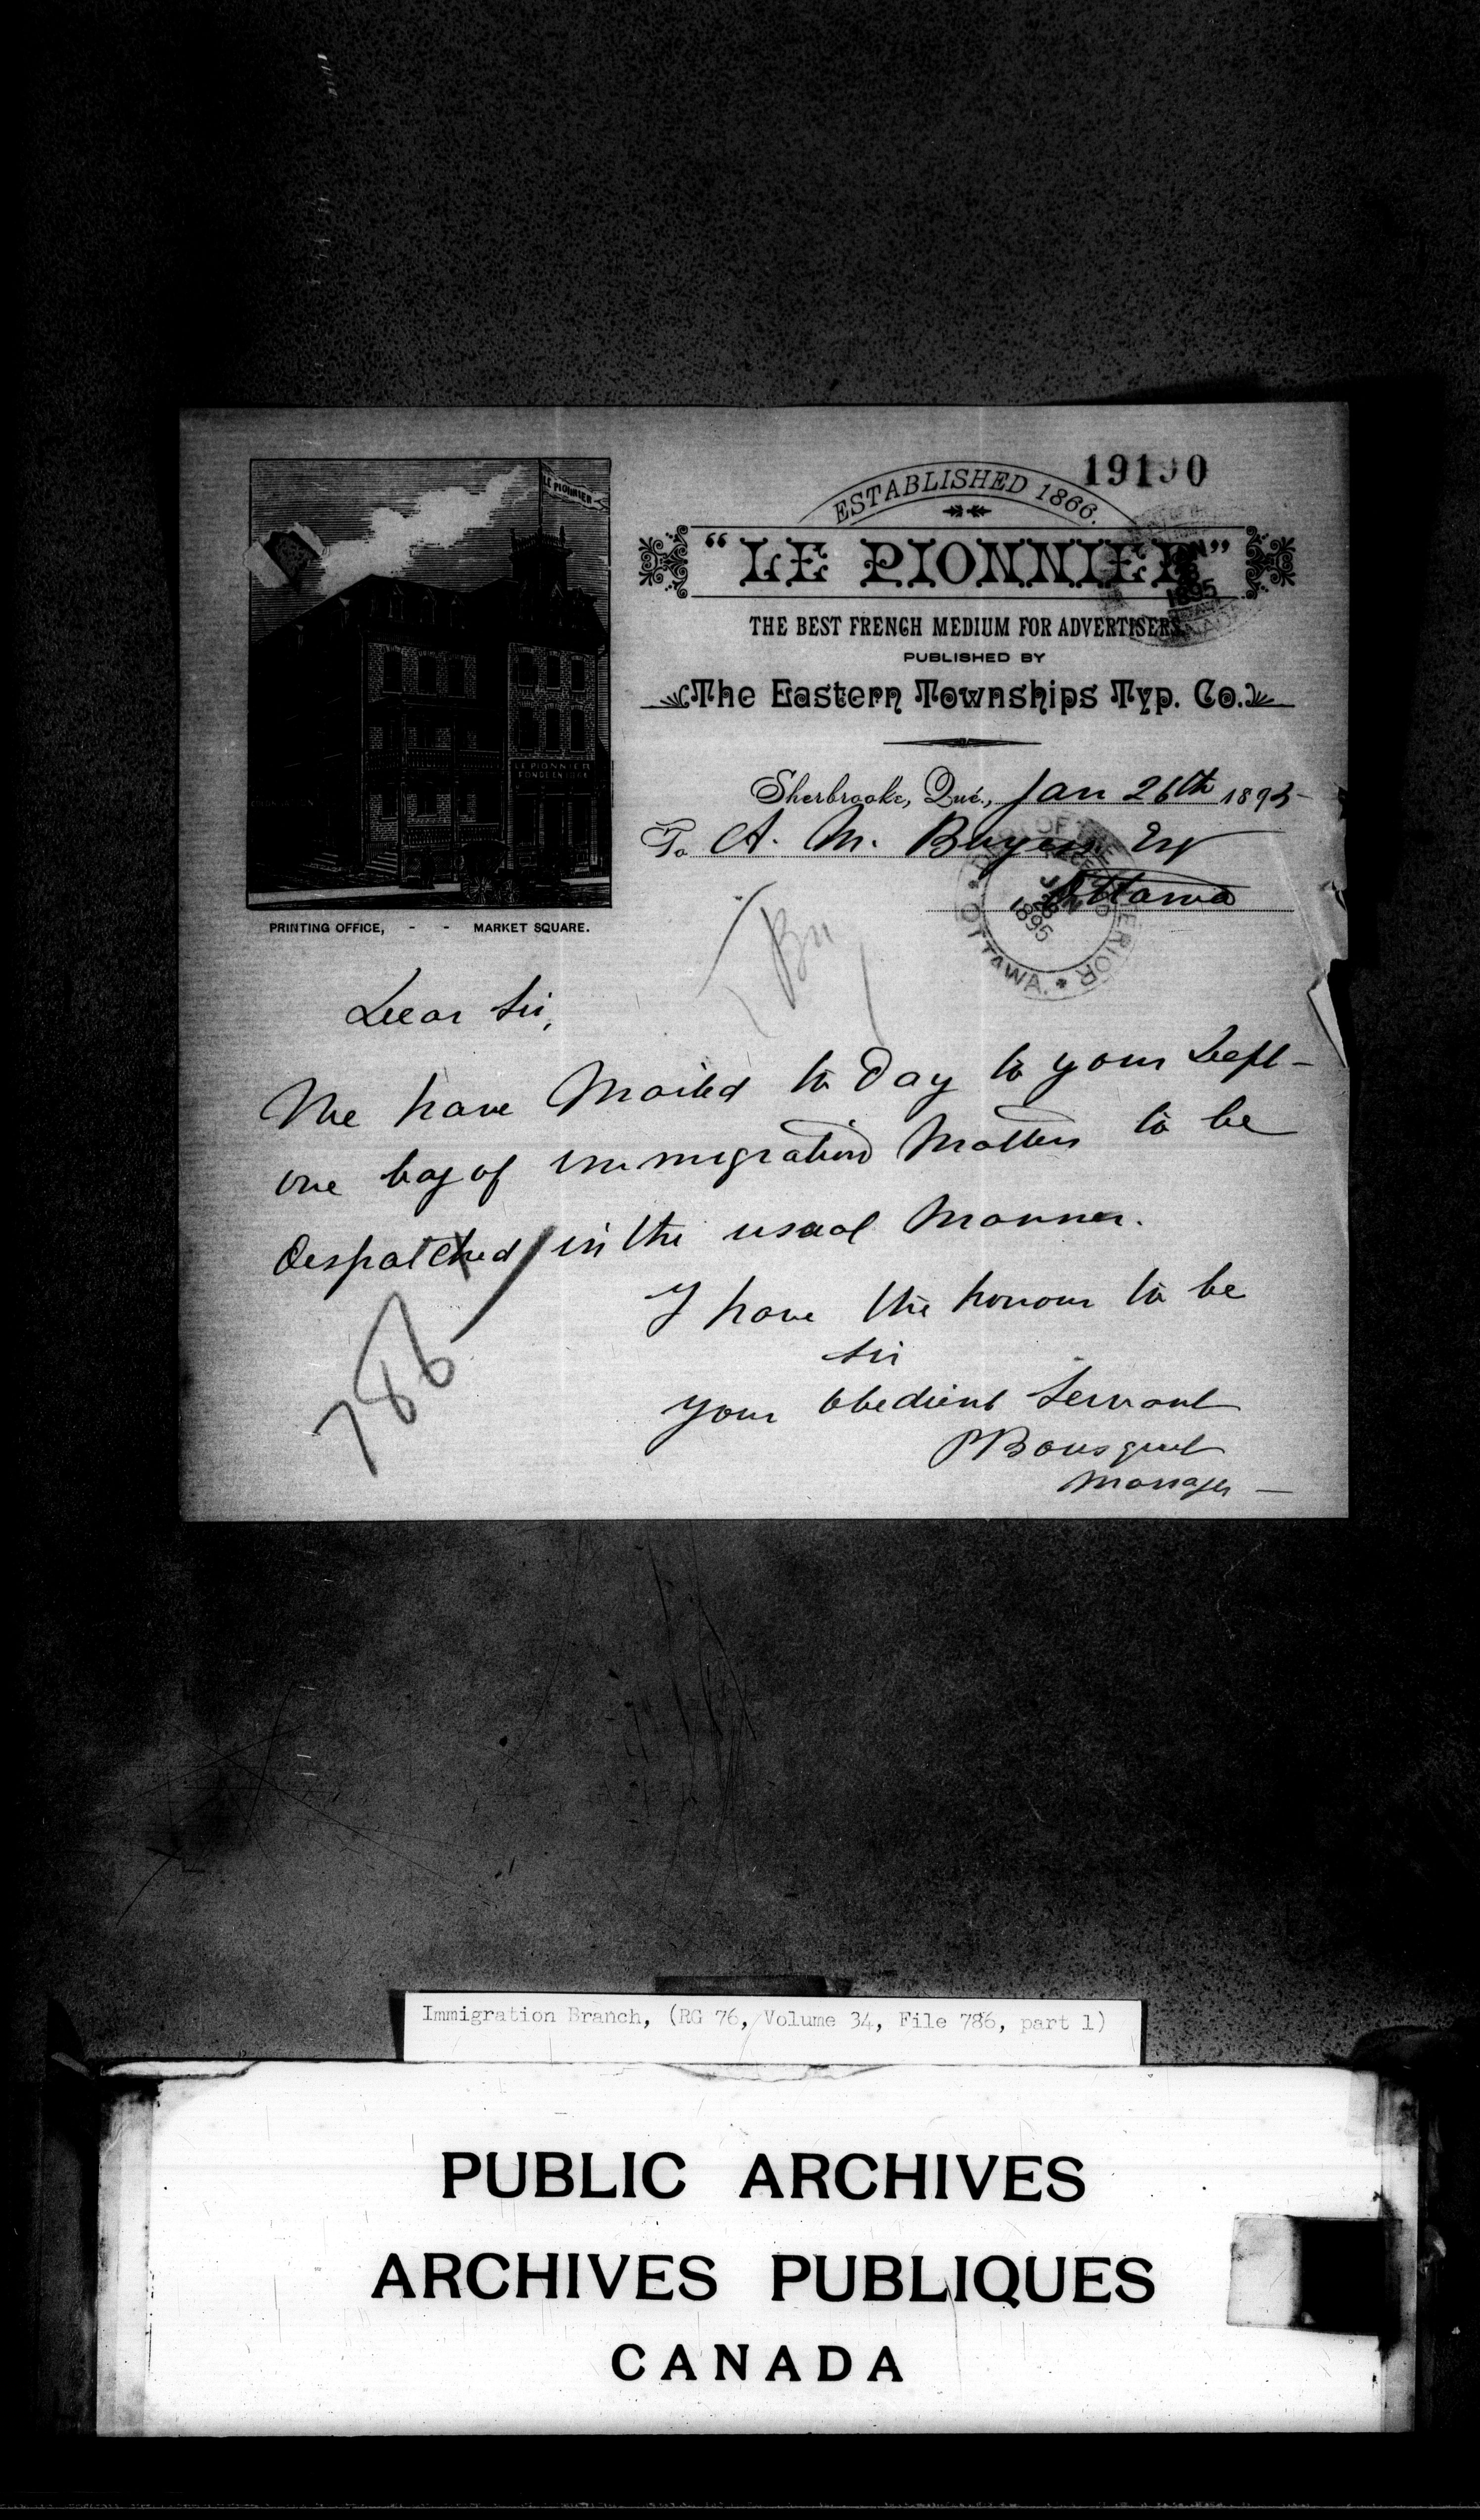 19190
LE PIONNIER
ESTABLISHED 1866.
"LE PIONNIER"
1895
THE BEST FRENCH MEDIUM FOR ADVERTISERS
PUBLISHED BY
The Eastern Townships Typ. Co.
LE PIONNIER
FONDE EN 1866
PRINTING OFFICE, - - MARKET SQUARE.
Sherbrooke, Qué., Jan 26th 1895
To A. M. Burgess Esq
Ottawa
OTTAWA. 1895
Dear Sir,
We have Mailed to Day to your Dept-
one bag of immigration Matters to be
Despatched in the usual Manner.
I have the honour to be
Sir
Your Obedient Servant
P Bousquet
Manager -
786
Immigration Branch, (RG 76, Volume 34, File 786, part 1)
PUBLIC ARCHIVES
ARCHIVES PUBLIQUES
CANADA